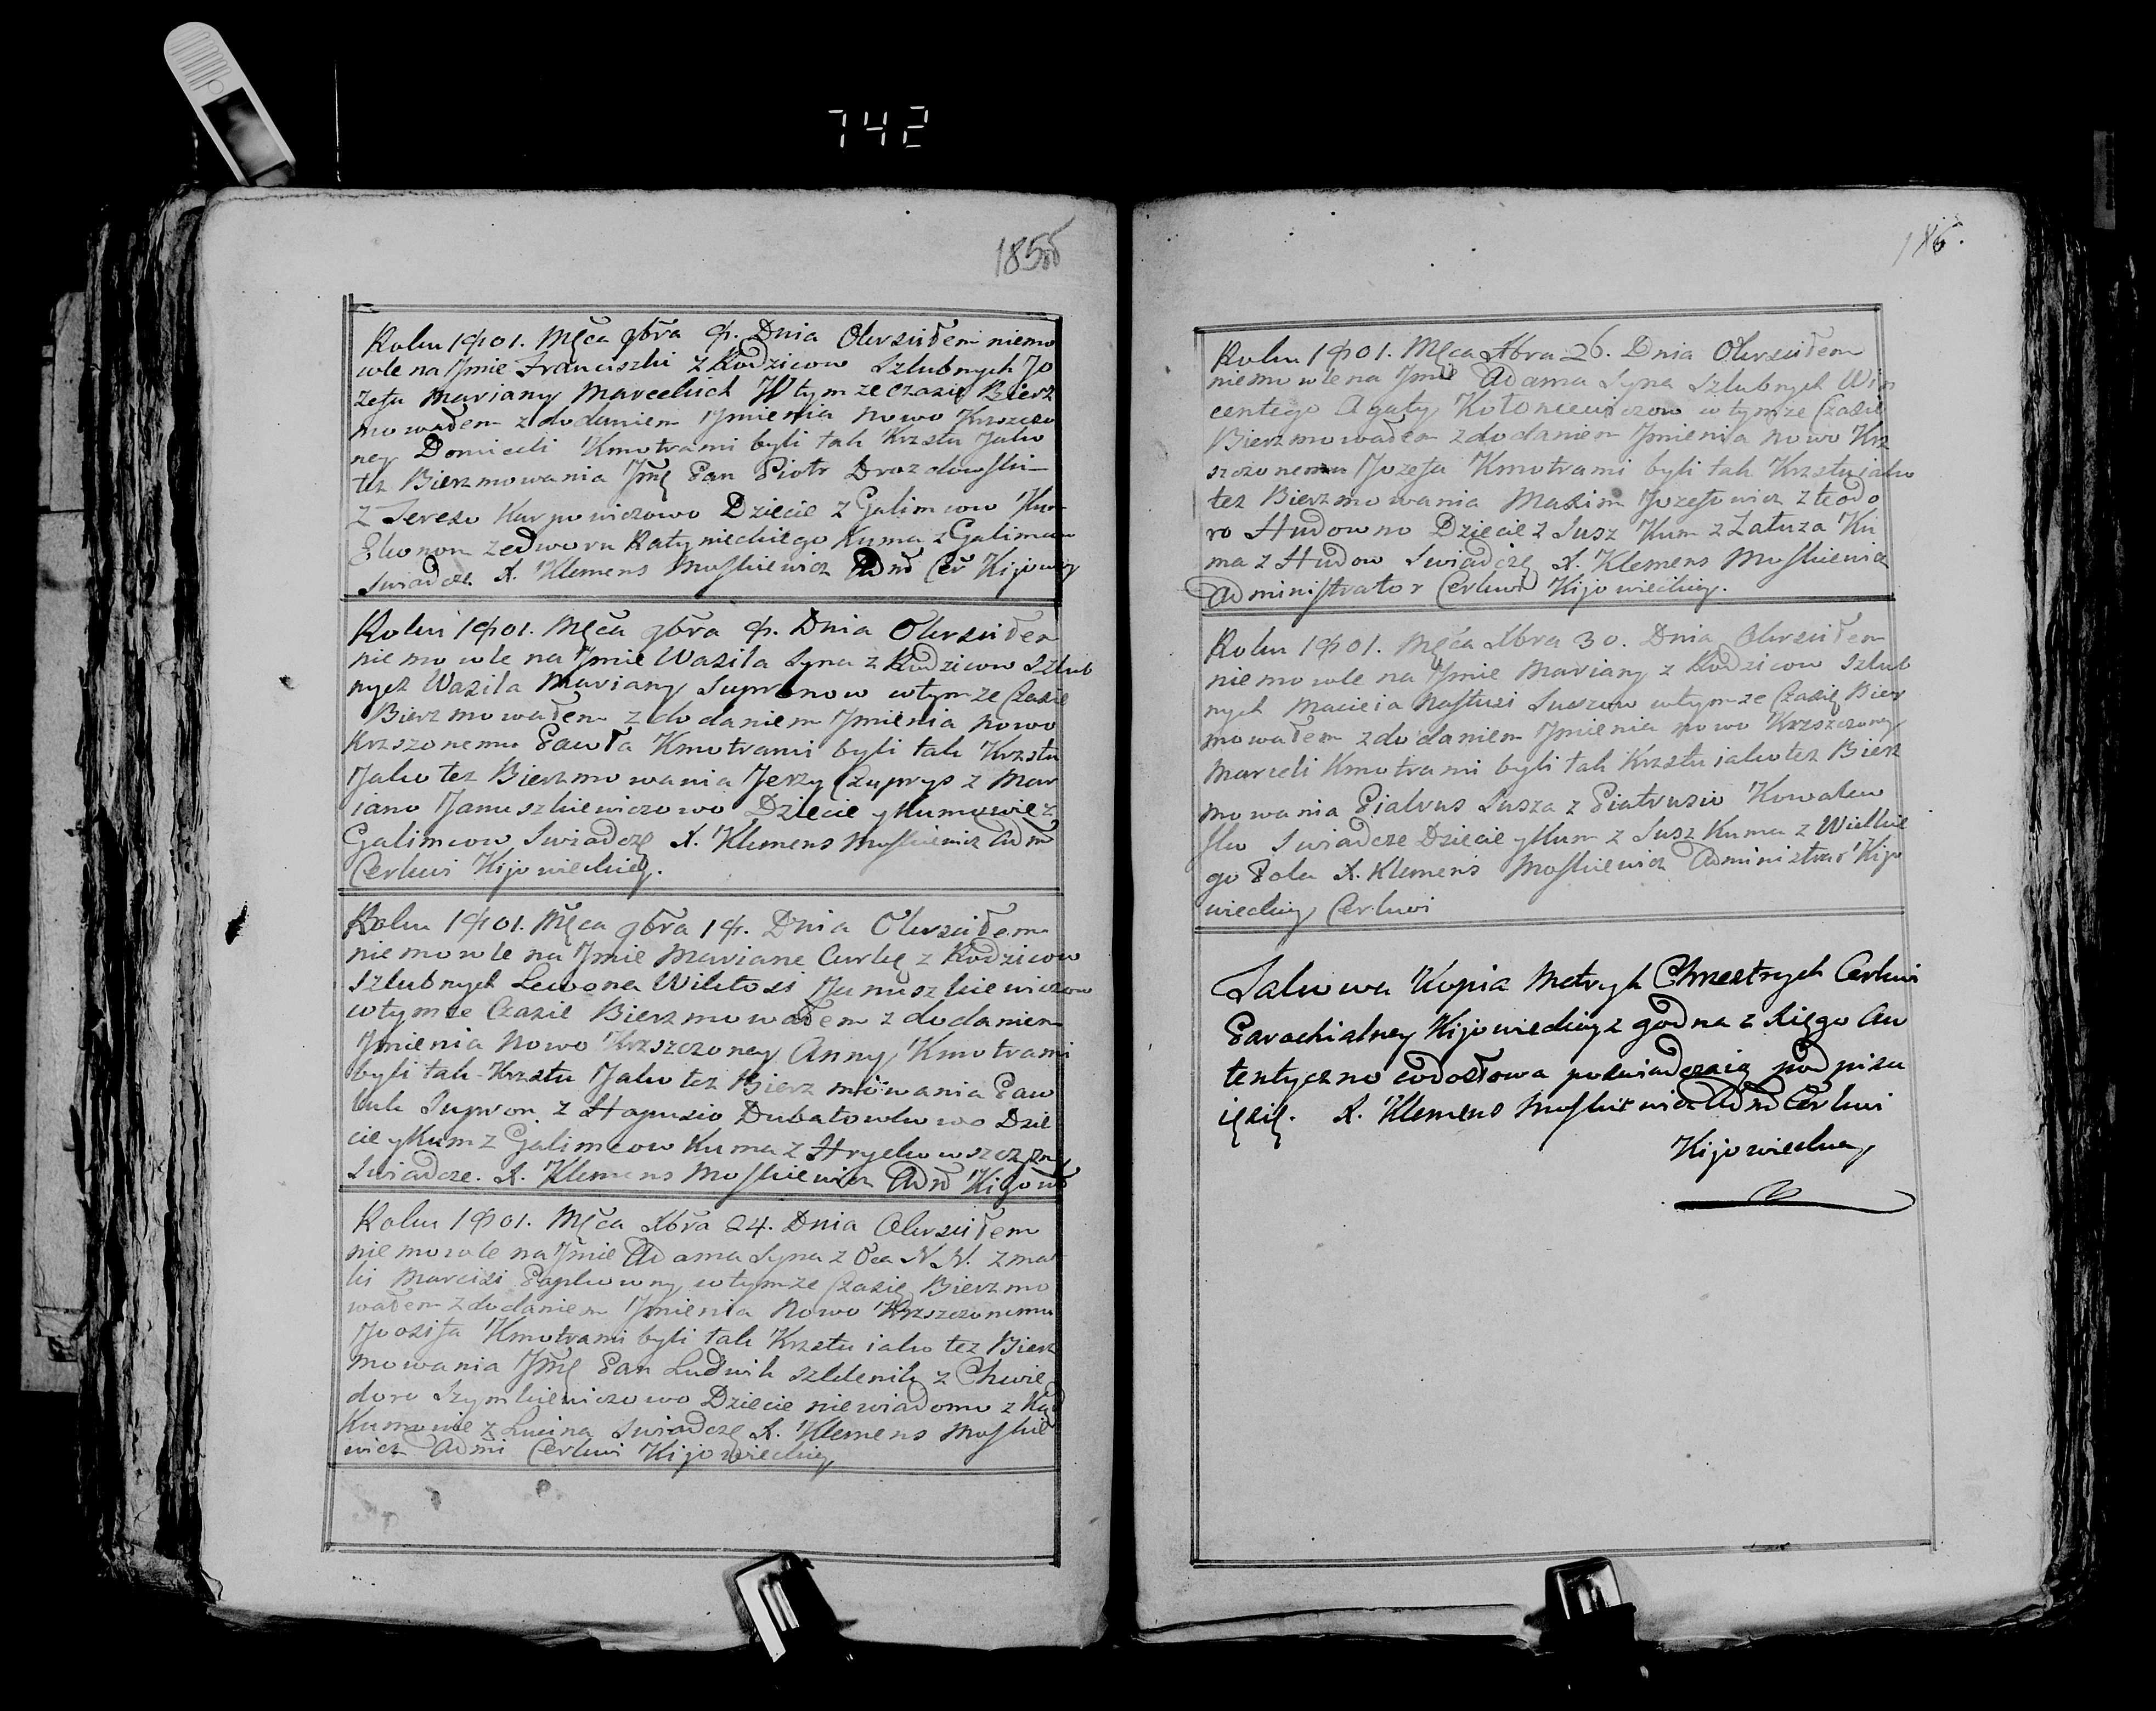 742
185об
Roku 1801. Mca 9bra 8. Dnia Okrzciłem niemo
wle na Jmie Franciszki z Rodzicow Szlubnych Jo
zefa Maryany Marcelich W tym ze czasie Bierz
mowałem z dodaniem Jmienia nowo Krzszczo
ney Domiceli Kmotrami byli tak Krzstu Jako
tez Bierzmowania Jmę Pan Piotr Drozdowski
z Tereso Karpowiczowo Dziecie z Galimcow Kum
Ekonom ze dworu Katynieckiego Kuma z Galimcow
Swiadcze X. Klemens Moskiewicz Adm Cer Kijowiey
Roku 1801. Męca 9bra 8. Dnia Okrzciłem
niemowle na Jmie Wasila Syna z Rodzicow Szlub
nych Wasila Maryany Supronow w tym ze Czasie
Bierzmowałem z dodaniem Jmienia nowo
Krzszonemu Pawła Kmotrami byli tak Krzstu
Jako tez Bierzmowania Jerzy Czuprys z Mar
iano Januszkiewiczowo Dziecie y Kumowie z
Galimcow Swiadczę X. Klemens Moskiewicz Adm
Cerkwi Kijowieckiey.
Roku 1801. Męca 9bra 18. Dnia Okrzciłem
niemowle na Jmie Maryane Curkę z Rodzicow
Szlubnych Lewona Wiktosi Januszkiewiczow
w tym ze Czasie Bierzmowałem z dodaniem
Jmienia nowo Krzszczoney Anny Kmotrami
byli tak Krzstu Jako tez Bierzmowania Paw
luk Supron z Hapusio Dubatowko wo Dzie
cie y Kum z Galimcow Kuma z Hryckowszczyzny
Swiadcze. X. Klemens Moskiewicz Adm Kijow
Roku 1801. Męca Xbra 24. Dnia Okrzciłem
niemowle na Jmie Adama Syna z Oca N. N. z mat
ki Marcisi Papkowny w tym ze Czasie Bierzmo
wałem z dodaniem Jmienia nowo Krzszczonemu
Joozifa Kmotrami byli tak Krzstu iako tez Bierz
mowania Jmę Pan Ludwik Szklenik z Chwie
doro Szymkiewiczowo Dziecie niewiadomo z Kąd
Kumowie z Lucina Swiadczę X. Klemens Moskie
wicz Admi Cerkwi Kijowieckiey
186.
Roku 1801. Męca Xbra 26. Dnia Okrzciłem
niemowle na Jmie Adama Syna Szlubnych Win
centego Agaty Kotoncewiczow w tym ze Czasie
Bierzmowałem z dodaniem Jmienia nowo Krz
szczonemu Jozefa Kmotrami byli tak Krzstu iako
tez Bierzmowania Maxim Jozefowicz z teodo
ro Hudowno Dziecie z Susz Kum z Zatuza Ku
ma z Hudow Swiadczę X. Klemens Moskiewicz
Administrator Cerkwi Kijowieckiey.
Roku 1801. Męca Xbra 30. Dnia Okrzciłem
niemowle na Jmie Maryany z Rodzicow Szlub
nych Macieia Nastusi Suszow w tym ze Czasie Bier
mowałem z dodaniem Jmienia nowo Krzszczoney
Marceli Kmotrami byli tak Krzstu iako tez Bierz
mowania Piatrus Susza z Piatrusio Kowalew
sko Swiadcze Dziecie y Kum z Susz Kuma z Wielkie
go Pola X. Klemens Moskiewicz Administrator Kijo
wieckiey Cerkwi
Takowa Kopia Metryk Chrzestnych Cerkwi
Parochialney Kijowieckiey z godna z Xięgo Au
tentyczno codosłowa poświadczaią podpisu
ię się. X. Klemens Moskiewicz Adm Cerkwi
Kijowieckiey